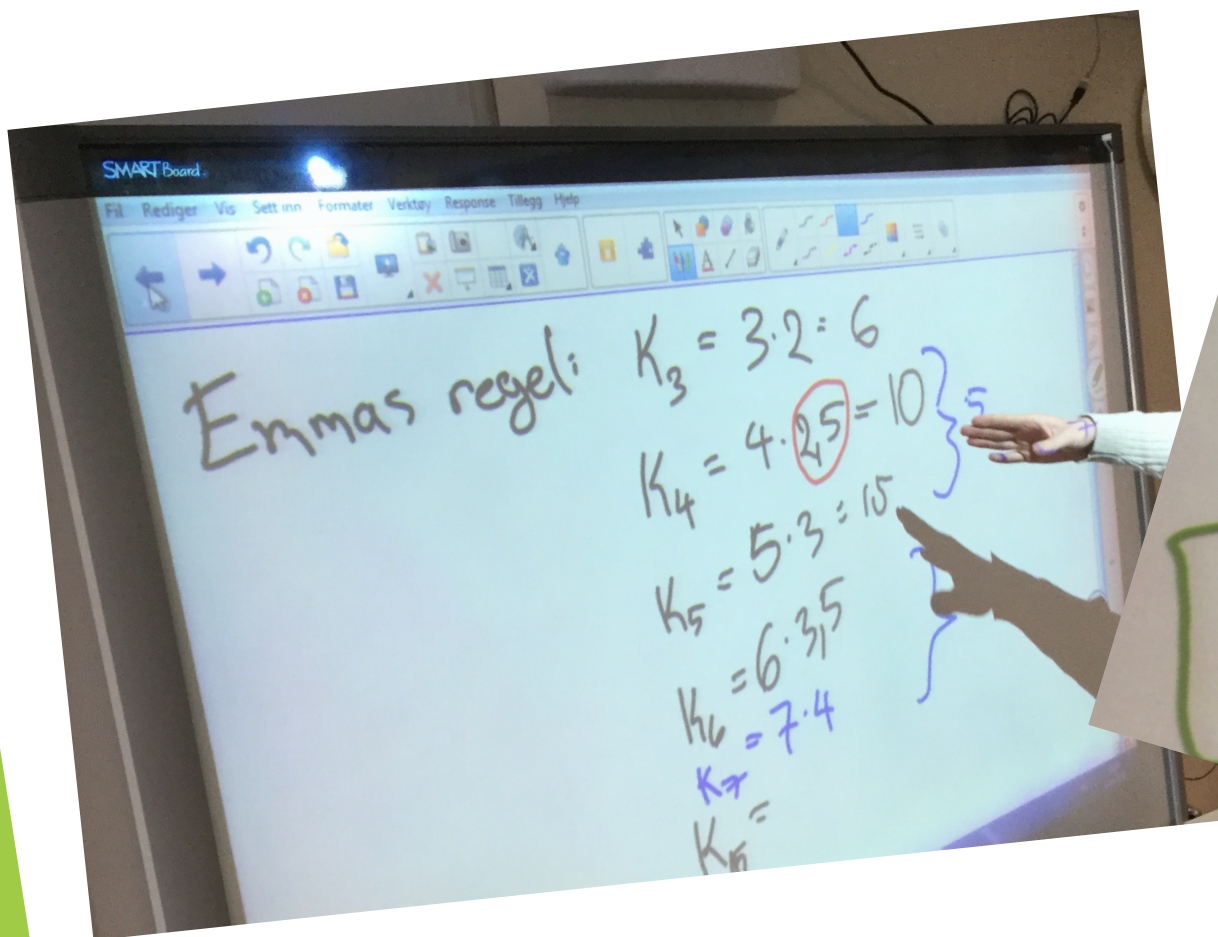 SMART Board
Fil Rediger Vis Sett inn Formater Verktøy Response Tillegg Hjelp
Emmas regel:
K₃ = 3·2 = 6
K₄ = 4·2,5 = 10
·5
K₅ = 5·3 = 15
K₆ = 6·3,5
K₇ = 7·4